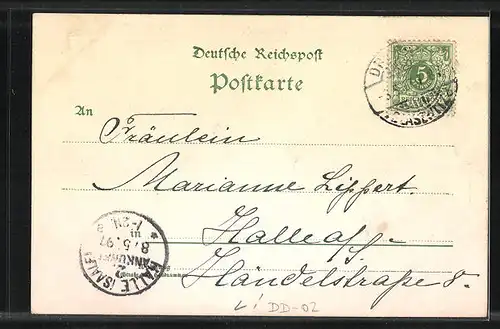 Deutsche Reichspost
Postkarte
An
5
Fräulein
Marianne Lippert.
Halle a/S.
Händelstraße 8.
HALLE (SAALE)
8/5.97
1-2N.
DD-02